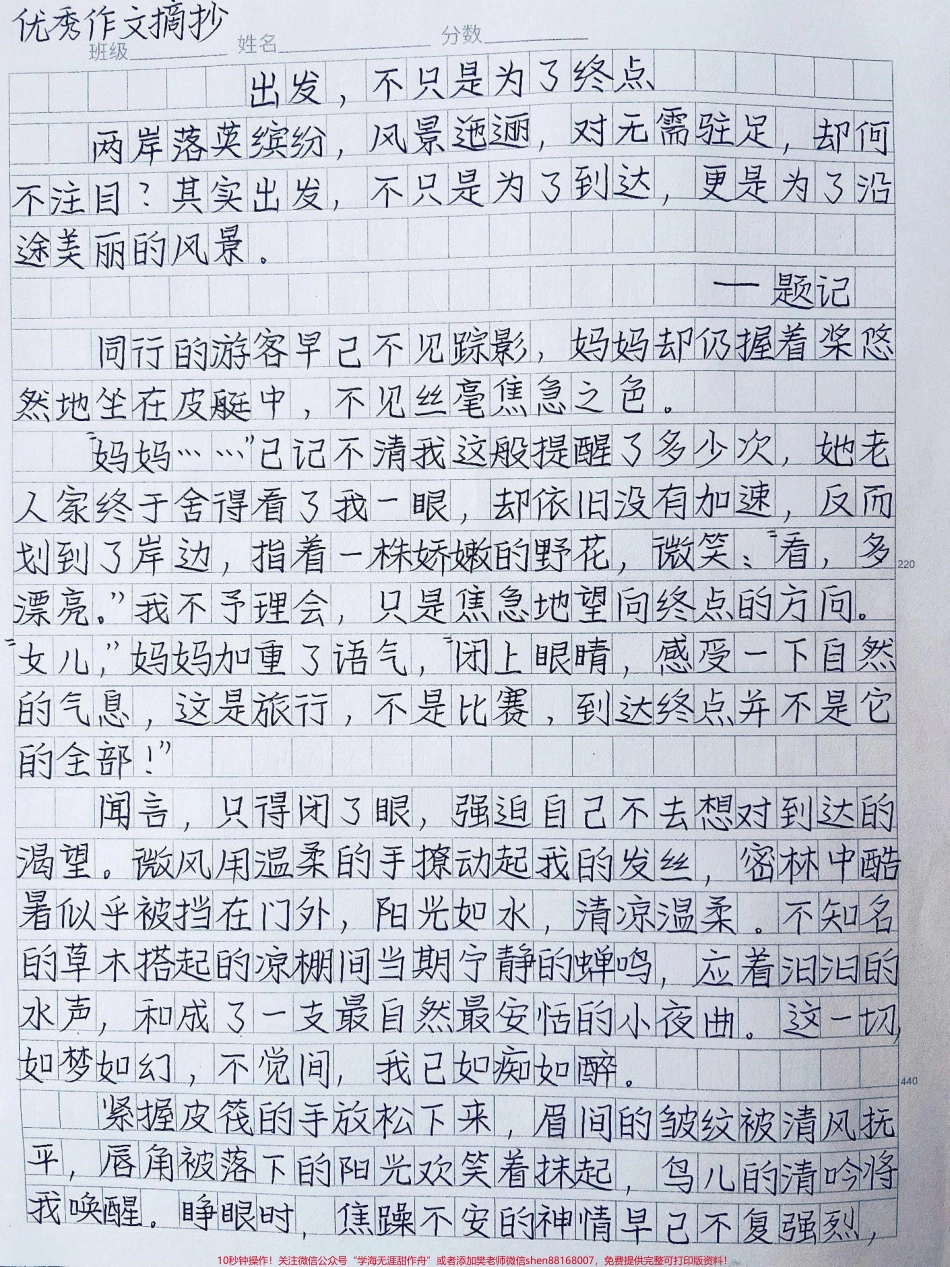 优秀作文摘抄
班级 姓名 分数
出发，不只是为了终点
两岸落英缤纷，风景迤逦，对无需驻足，却何
不注目？其实出发，不只是为了到达，更是为了沿
途美丽的风景。
——题记
同行的游客早已不见踪影，妈妈却仍握着桨悠
然地坐在皮艇中，不见丝毫焦急之色。
“妈妈……”已记不清我这般提醒了多少次，她老
人家终于舍得看了我一眼，却依旧没有加速，反而
划到了岸边，指着一株娇嫩的野花，微笑：“看，多
漂亮。”我不予理会，只是焦急地望向终点的方向。
“女儿，”妈妈加重了语气，“闭上眼睛，感受一下自然
的气息，这是旅行，不是比赛，到达终点并不是它
的全部！”
闻言，只得闭了眼，强迫自己不去想对到达的
渴望。微风用温柔的手撩动起我的发丝，密林中酷
暑似乎被挡在门外，阳光如水，清凉温柔。不知名
的草木搭起的凉棚间当期宁静的蝉鸣，应着汩汩的
水声，和成了一支最自然最安恬的小夜曲。这一切，
如梦如幻，不觉间，我已如痴如醉。
紧握皮筏的手放松下来，眉间的皱纹被清风抚
平，唇角被落下的阳光欢笑着抹起，鸟儿的清吟将
我唤醒。睁眼时，焦躁不安的神情早已不复强烈，
220
440
10秒钟操作！关注微信公众号“学海无涯甜作舟”或者添加樊老师微信shen88168007，免费提供完整可打印版资料！